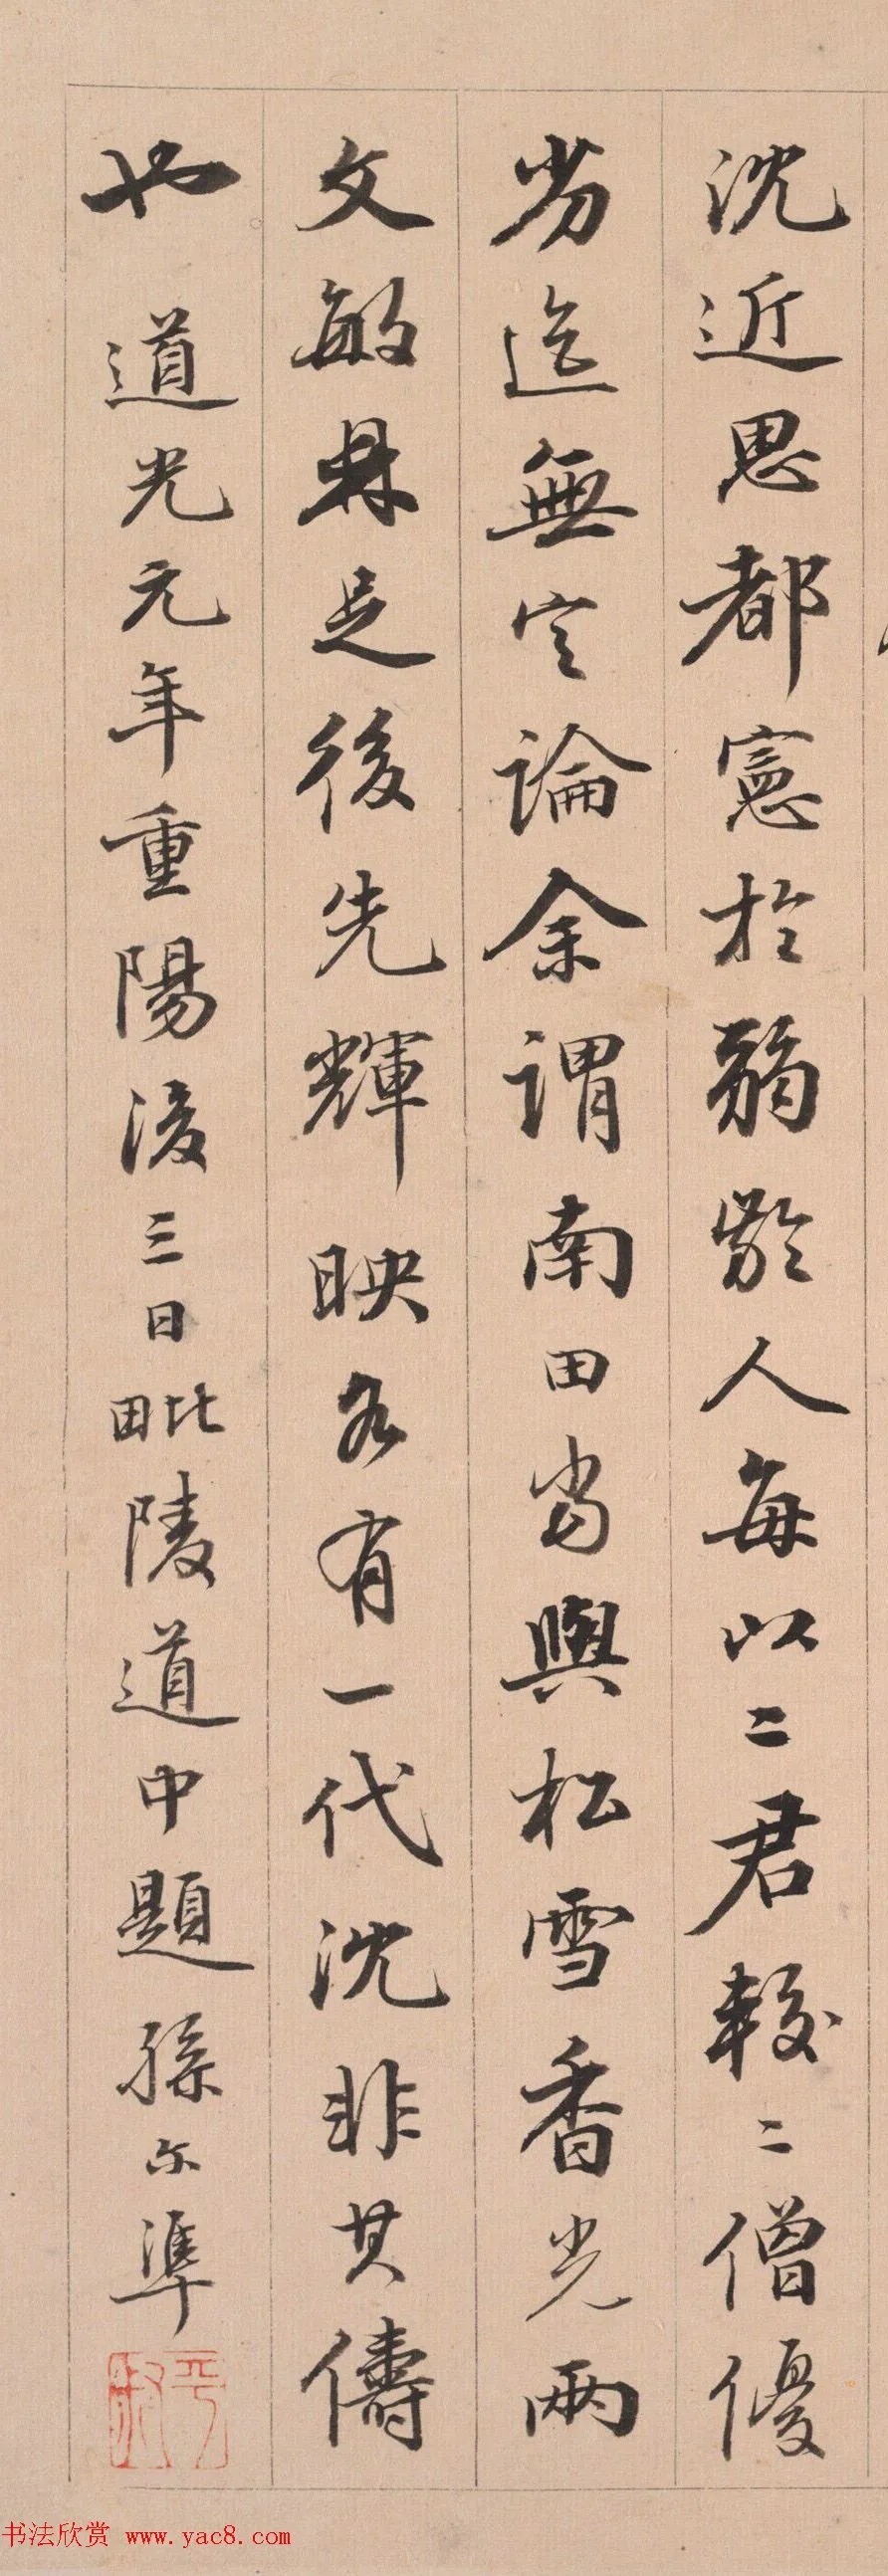 沈近思都憲於弱齡人每以二君較二僧優
劣迄無定論余謂南田當與松雪香光兩
文敏鼎足後先輝映各有一代沈非其儔
也 道光元年重陽後三日毗陵道中題孫尔準
平叔
书法欣赏 www.yac8.com